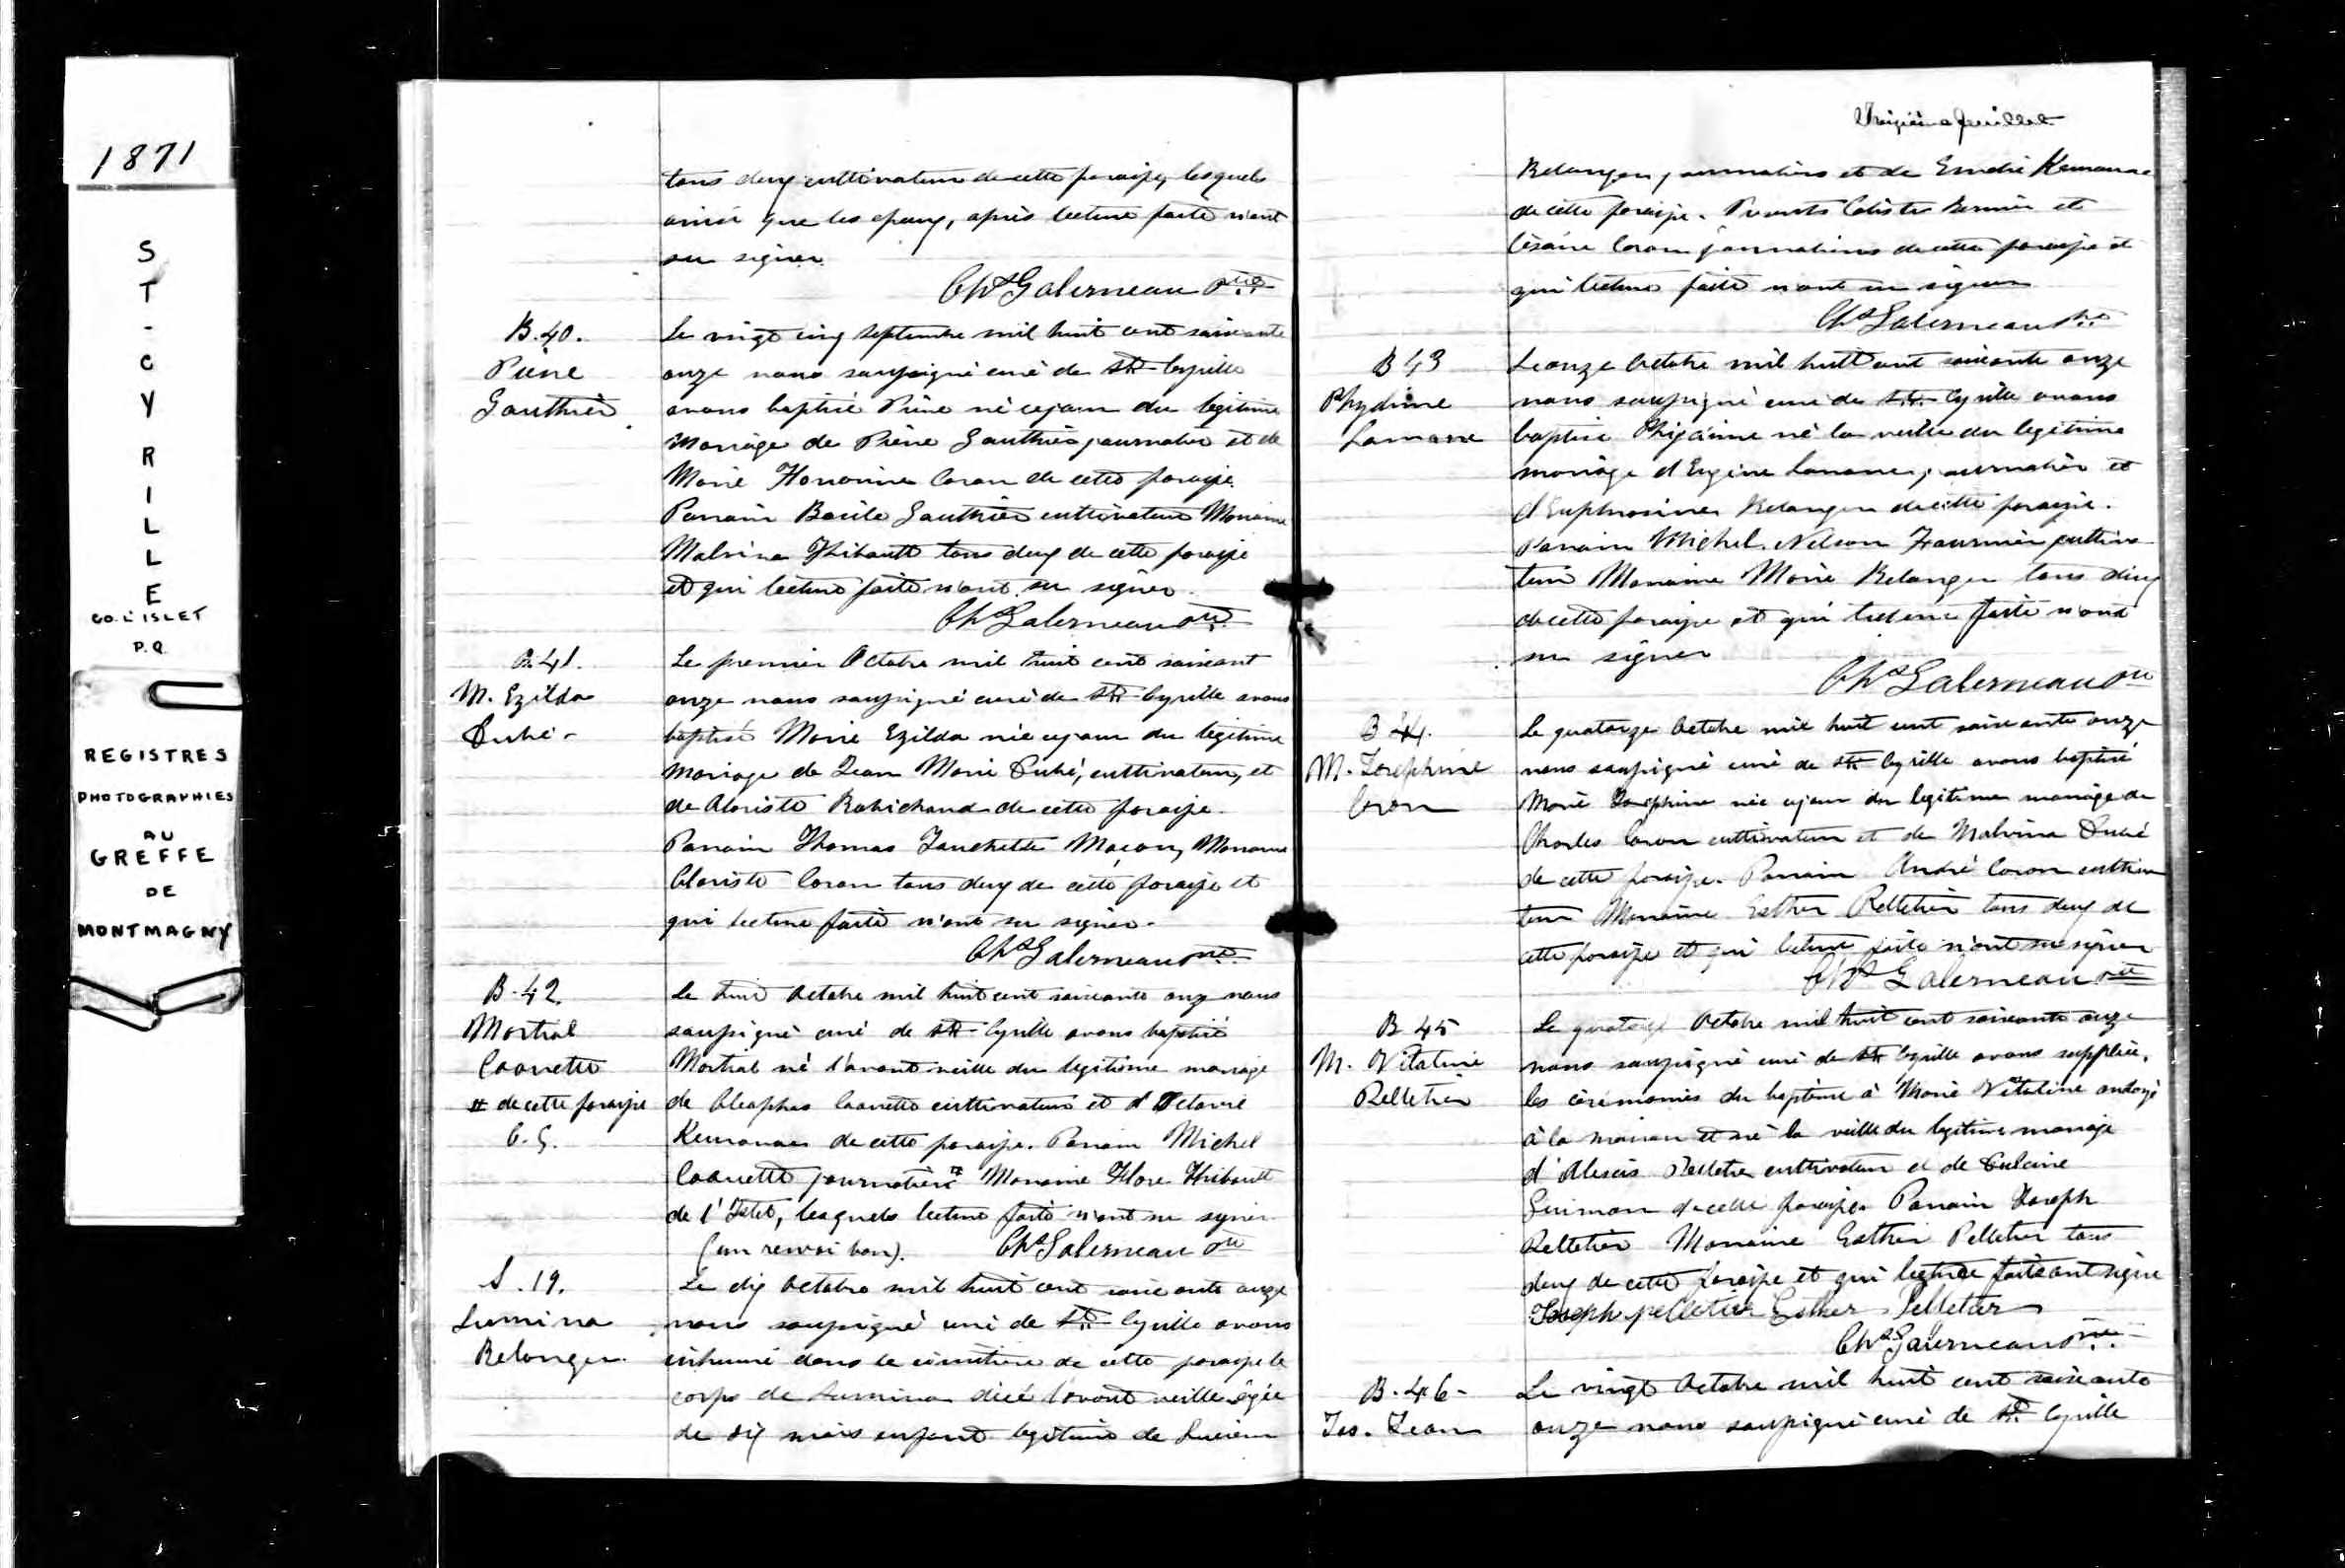 1871
ST-CYRILLE
CO. L'ISLET
P.Q.
REGISTRES
PHOTOGRAPHIES
AU
GREFFE
DE
MONTMAGNY
tous deux cultivateurs de cette paroisse, lesquels
ainsi que les epoux, après lecture faite n'ont
su signer
Chs Galerneau Ptre
B. 40.
Pierre
Gauthier
Le vingt cinq Septembre mil huit cent soixante
onze nous soussigné curé de St. Cyrille
avons baptisé Pierre né ce jour du legitime
Mariage de Pierre Gauthier journalier et de
Marie Honorine Caron de cette paroisse.
Parrain Basile Gauthier cultivateur Marraine
Malvina Thibault tous deux de cette paroisse
et qui lecture faite n'ont su signer.
Chs Galerneau Ptre
B. 41.
M. Ezilda
Dubé
Le premier Octobre mil huit cent soixant
onze nous soussigné curé de St. Cyrille avons
baptisé Marie Ezilda née ce jour du legitime
Mariage de Jean Marie Dubé, cultivateur, et
de Robichaud de cette paroisse.
Parrain Thomas Maçon, Marraine
Clariste Caron tous deux de cette paroisse et
qui lecture faite n'ont su signer.
Chs Galerneau Ptre
B. 42.
Martial
Caouette
# de cette paroisse
C. G.
Le huit Octobre mil huit cent soixante onze nous
soussigné curé de St. Cyrille avons baptisé
Martial né l'avant veille du legitime mariage
de Cleophas Caouette cultivateur et d'Octavie
Kerouac de cette paroisse. Parrain Michel
Caouette journalier # Marraine Flore Thibault
de l'Islet, lesquels lecture faite n'ont su signer
(un renvoi bon). Chs Galerneau Ptre
S. 19.
Lumina
Belanger
Le dix Octobre mil huit cent soixante onze
nous soussigné curé de St. Cyrille avons
inhumé dans le cimetière de cette paroisse le
corps de Lumina l'avant veille agée
de dix mois enfant legitime de
feuillet
Belanger, journalier et de
de cette paroisse. Presents Bernier et
Césaire Caron journaliers de cette paroisse et
qui lecture faite n'ont su signer
Chs Galerneau Ptre
B 43
Phydime
Lamarre
Le onze Octobre mil huit cent soixante onze
nous soussigné curé de St. Cyrille avons
baptisé né la veille du legitime
mariage d'Eugène Lamarre, journalier et
d'Euphrosine Belanger de cette paroisse.
Parrain Michel Nelson Fournier cultiva
teur Marraine Marie Belanger tous deux
de cette paroisse et qui lecture faite n'ont
su signer
Chs Galerneau Ptre
B 44.
M. Josephine
Caron
Le quatorze Octobre mil huit cent soixante onze
nous soussigné curé de St. Cyrille avons baptisé
Marie Josephine née ce jour du legitime mariage de
Charles Caron cultivateur et de Malvina Dubé
de cette paroisse. Parrain André Caron cultiva
teur Marraine Esther Pelletier tous deux de
cette paroisse et qui lecture faite n'ont su signer
Chs Galerneau Ptre
B 45
M. Vitaline
Pelletier
Le quatorze Octobre mil huit cent soixante onze
nous soussigné curé de St. Cyrille avons suppléé,
les cérémonies du baptême à Marie Vitaline ondoyé
à la maison et né la veille du legitime mariage
d'Alexis Pelletier cultivateur et de
Guimon de cette paroisse Parrain Joseph
Pelletier Marraine Esther Pelletier tous
deux de cette paroisse et qui lecture faite ont signé
Joseph pelletier Esther Pelletier
Chs Galerneau Ptre
B. 46
Jos. Jean
Le vingt Octobre mil huit cent soixante
onze nous soussigné curé de St. Cyrille